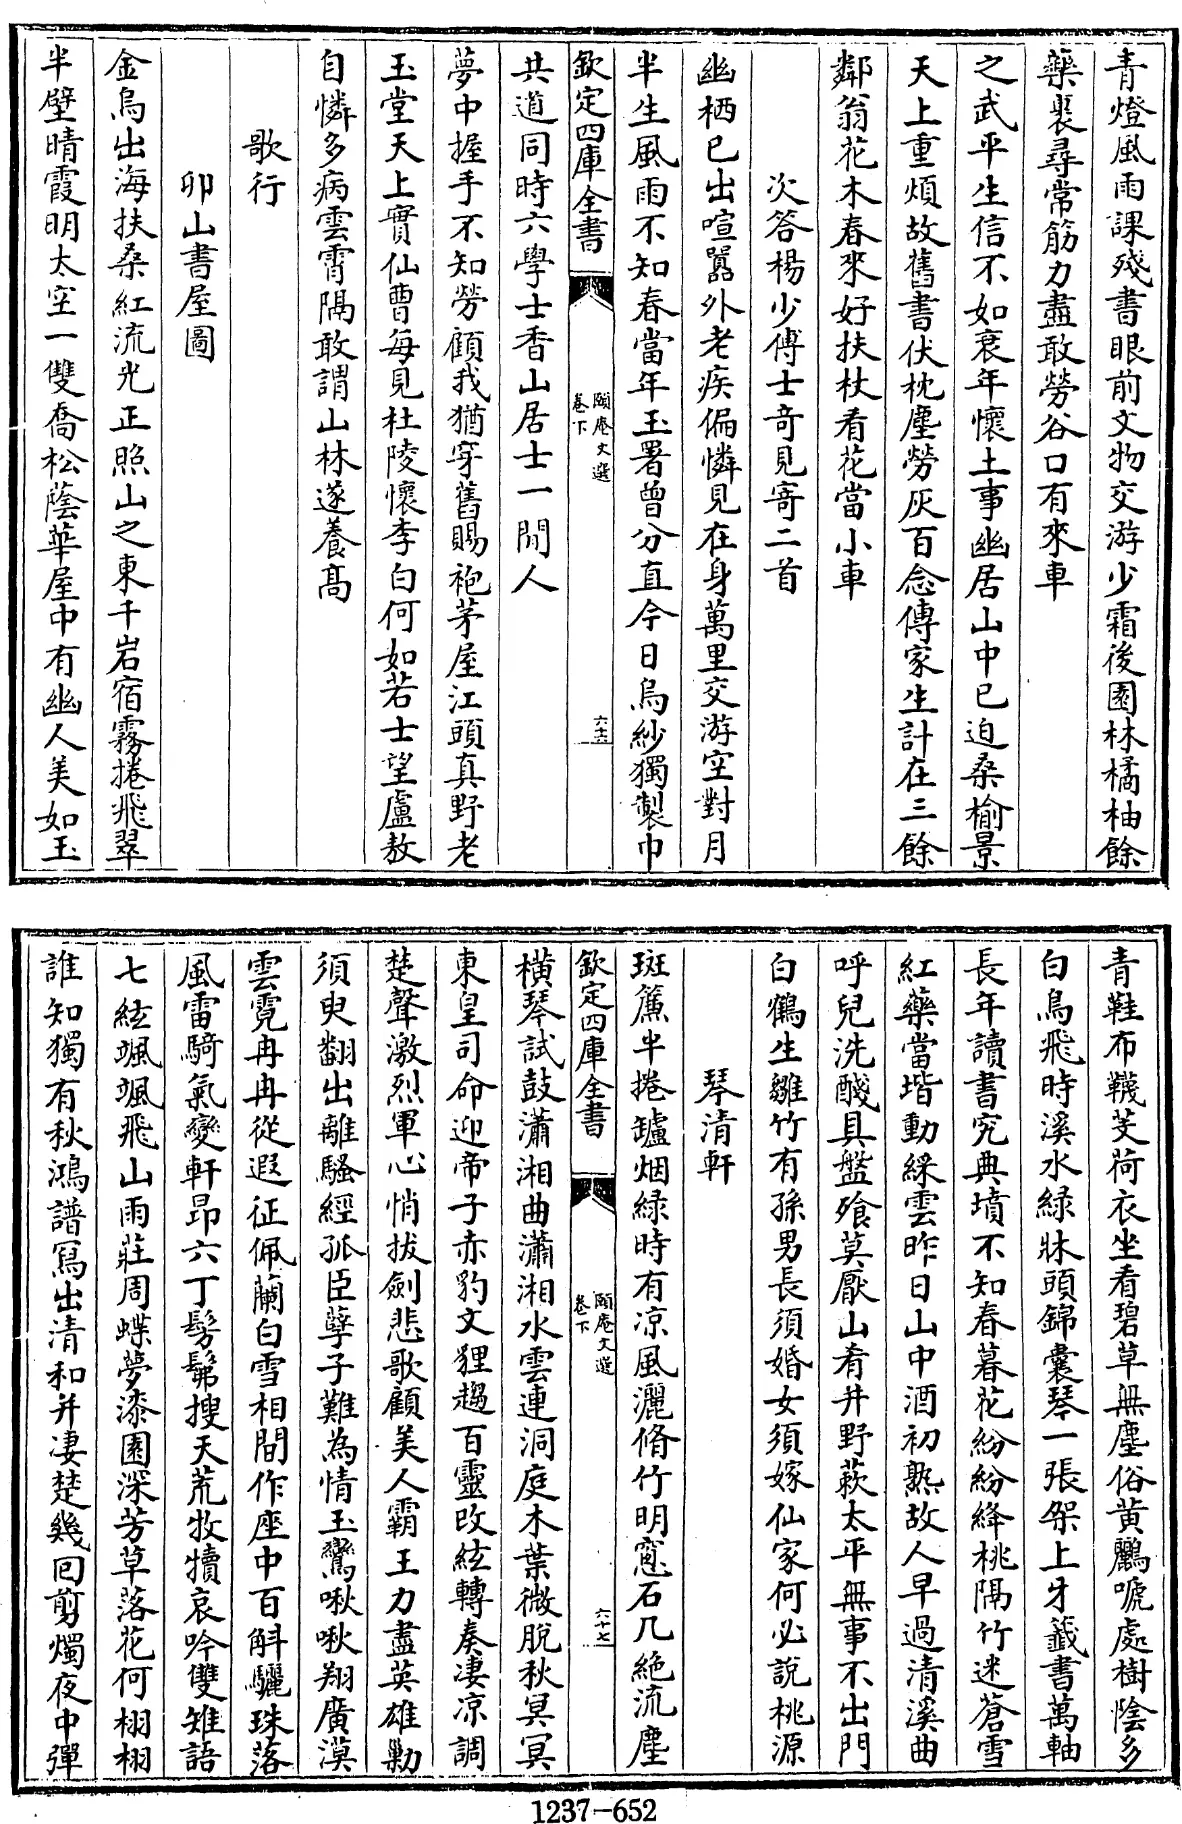 青燈風雨課殘書眼前文物交游少霜後園林橘柚餘
藥裹尋常筋力盡敢勞谷口有來車
之武平生信不如衰年懷土事幽居山中已迫桑榆景
天上重煩故舊書伏枕塵勞灰百念傳家生計在三餘
鄰翁花木春來好扶杖看花當小車
次答楊少傅士奇見寄二首
幽栖已出喧囂外老疾偏憐見在身萬里交游空對月
半生風雨不知春當年玉署曾分直今日烏紗獨製巾
欽定四庫全書
頤庵文選
卷下
六十六
共道同時六學士香山居士一閒人
夢中握手不知勞顧我猶穿舊賜袍茅屋江頭真野老
玉堂天上實仙曹每見杜陵懷李白何如若士望盧敖
自憐多病雲霄隔敢謂山林遂養高
歌行
卯山書屋圖
金烏出海扶桑紅流光正照山之東千岩宿霧捲飛翠
半壁晴霞明太空一雙喬松蔭華屋中有幽人美如玉
青鞋布韈芰荷衣坐看碧草無塵俗黃鸝嗁處樹陰多
白鳥飛時溪水綠牀頭錦囊琴一張架上牙籤書萬軸
長年讀書究典墳不知春暮花紛紛絳桃隔竹迷蒼雪
紅藥當堦動綵雲昨日山中酒初熟故人早過清溪曲
呼兒洗醆具盤飱莫厭山肴并野蔌太平無事不出門
白鶴生雛竹有孫男長須婚女須嫁仙家何必說桃源
琴清軒
斑簾半捲鑪烟綠時有凉風灑脩竹明窻石几絶流塵
欽定四庫全書
頤庵文選
卷下
六十七
橫琴試鼓瀟湘曲瀟湘水雲連洞庭木葉微脫秋冥冥
東皇司命迎帝子赤豹文狸趨百靈改絃轉奏凄凉調
楚聲激烈軍心悄拔劍悲歌顧美人霸王力盡英雄勦
須臾翻出離騷經孤臣孽子難為情玉鸞啾啾翔廣漠
雲霓冉冉從遐征佩蘭白雪相間作座中百斛驪珠落
風雷騎氣變軒昂六丁髣髴搜天荒牧犢哀吟雙雉語
七絃颯颯飛山雨莊周蝶夢漆園深芳草落花何栩栩
誰知獨有秋鴻譜寫出清和并凄楚幾回剪燭夜中彈
1237-652